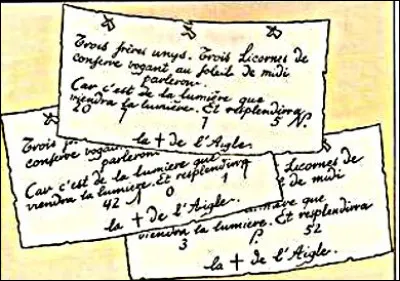 Trois frères unys. Trois Licornes de
conserve vogant au soleil de midi
parleron.
Car c'est de la lumière que
viendra la lumière. Et resplendira
20 7 7 5 N.
la + de l'Aigle.
Trois
conserve vogant
parleron
Car c'est de la lumiere que
viendra la lumiere. Et resplendira
42 1 0 1
la + de l'Aigle.
Licornes de
de midi
que
viendra la lumiere. Et resplendira
3 52
la + de l'Aigle.